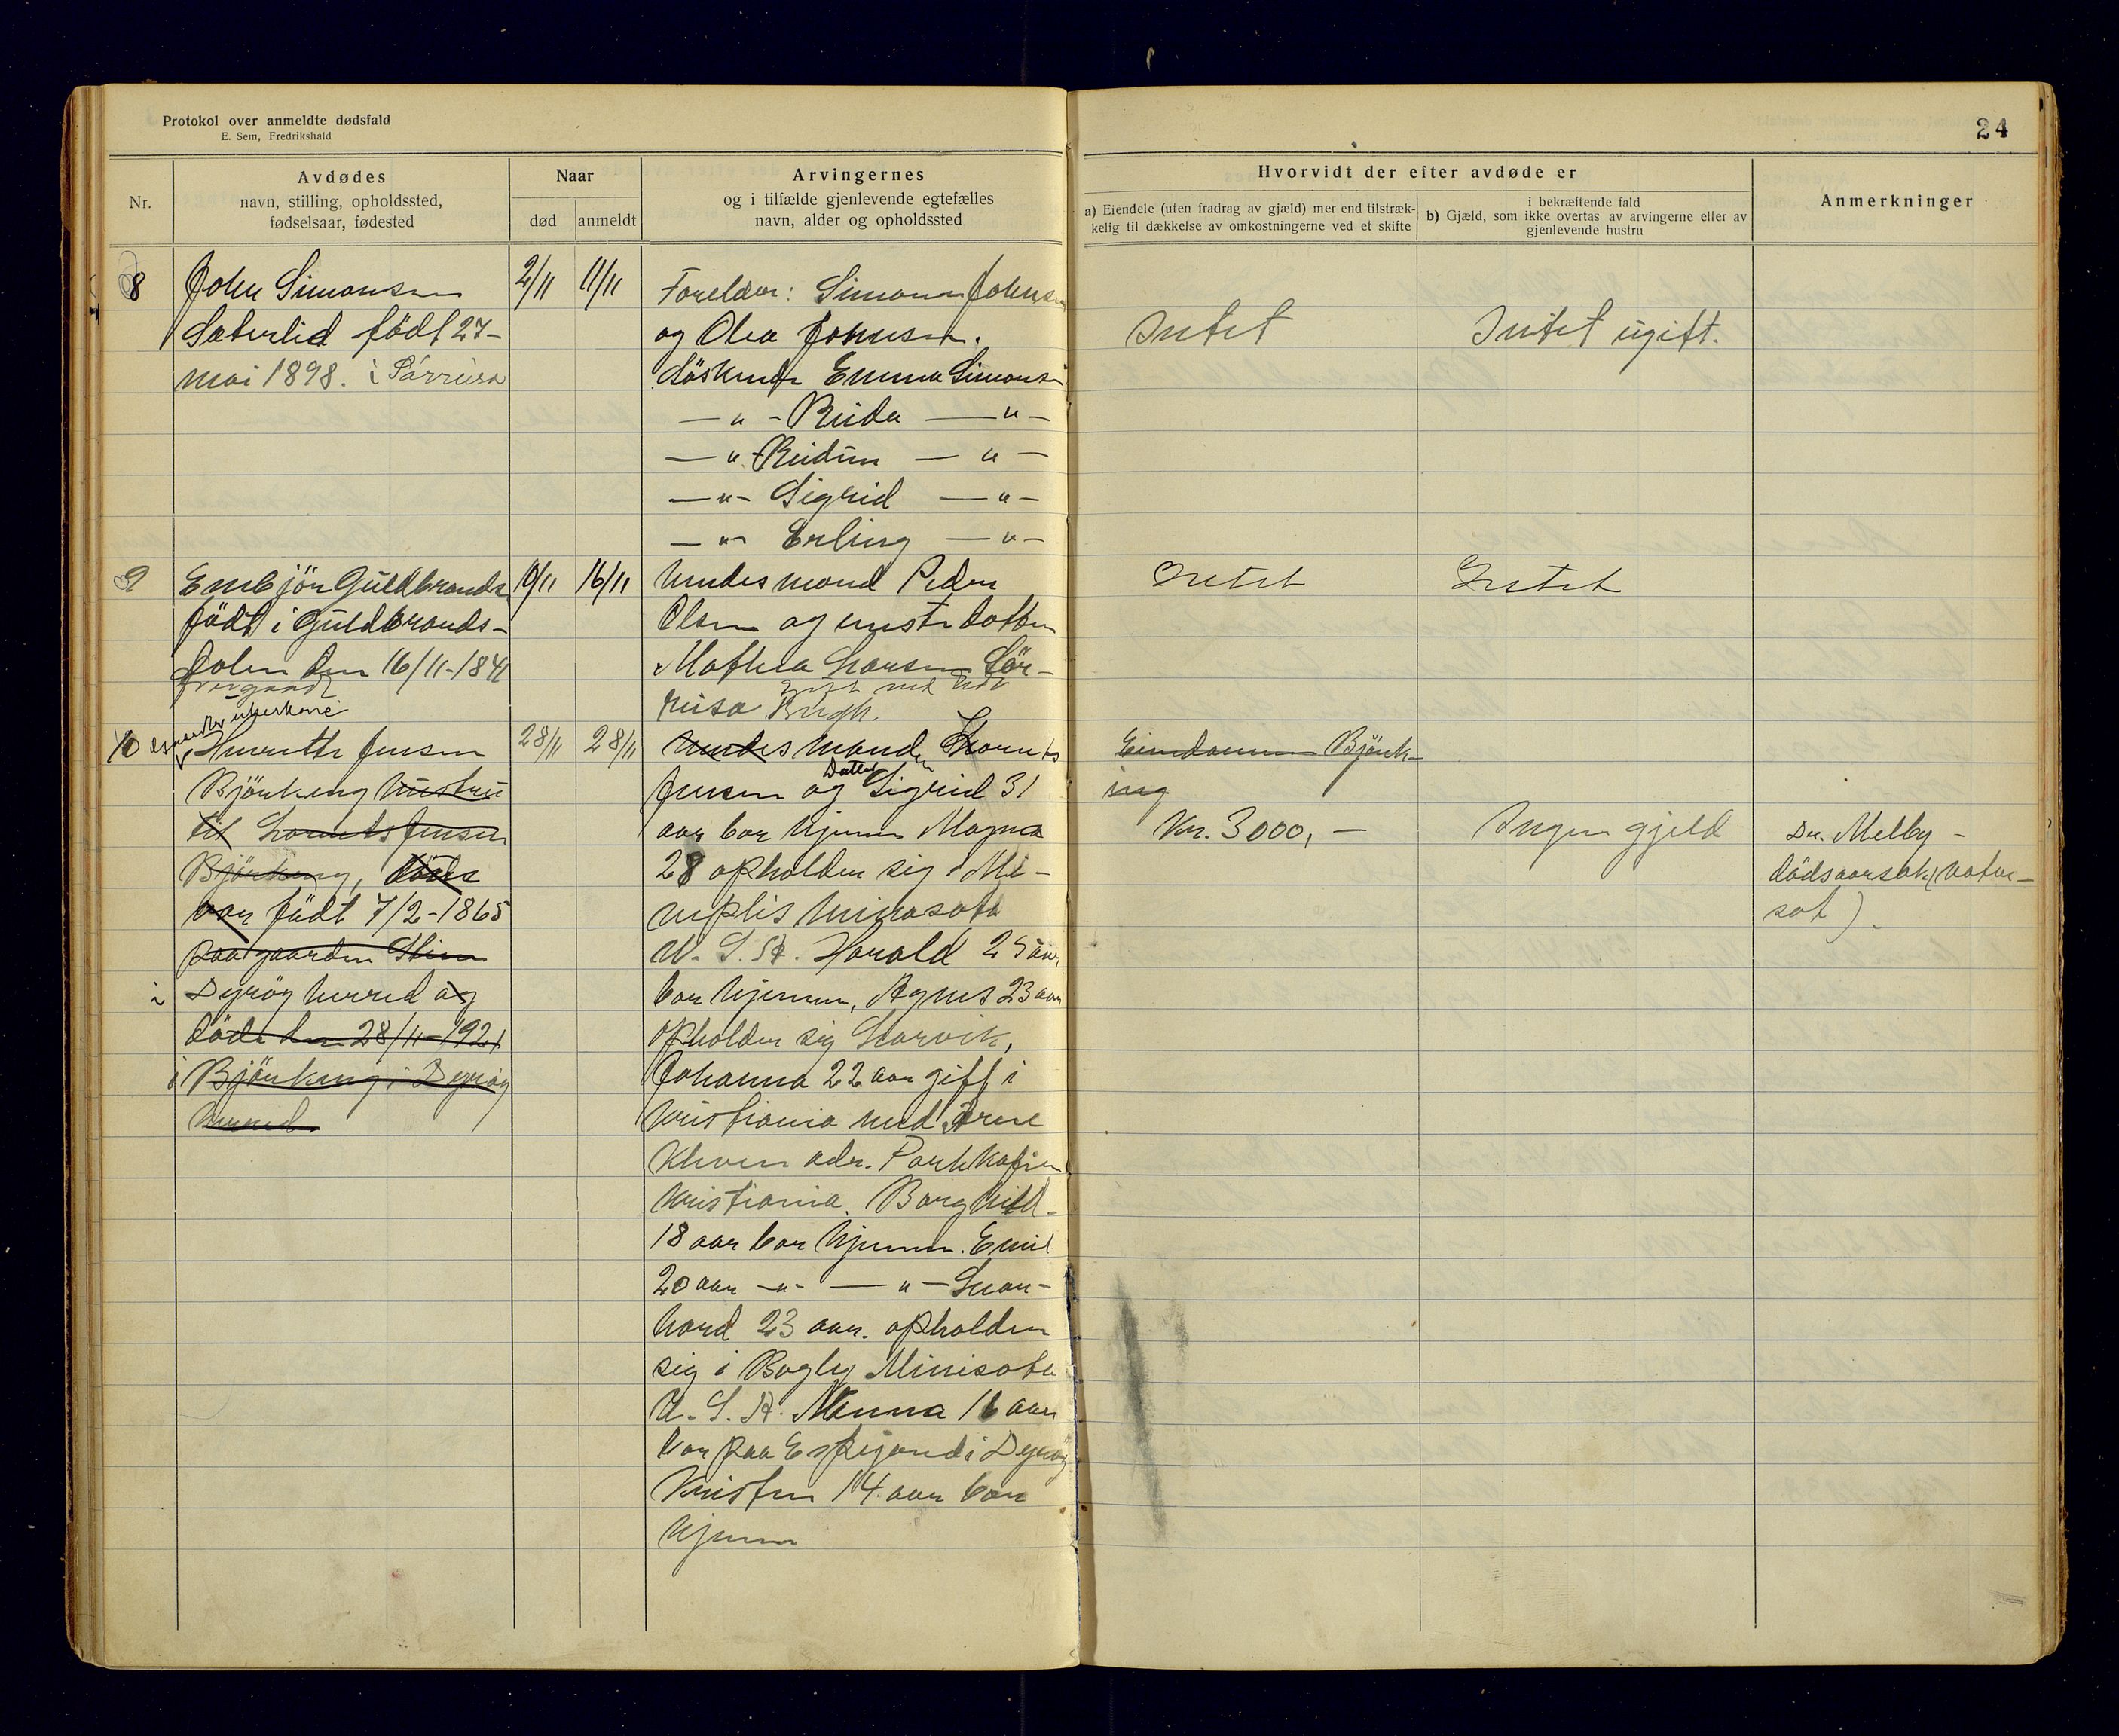 Protokol over anmeldte dødsfald
E. Sem, Fredrikshald
24
Nr.
Avdødes
navn, stilling, opholdssted,
fødselsaar, fødested
Naar
død
anmeldt
Arvingernes
og i tilfælde gjenlevende egtefælles
navn, alder og opholdssted
Hvorvidt der efter avdøde er
a) Eiendele (uten fradrag av gjæld) mer end tilstræk-
kelig til dækkelse av omkostningerne ved et skifte
i bekræftende fald
b) Gjæld, som ikke overtas av arvingerne eller av
gjenlevende hustru
Anmerkninger
8
John Simonsen
Säterlid födt 27-
mai 1898. i Sörreisa
2/11
11/11
Foreldre: Simon Johnsen
og Olea Johnsen.
Söskende Emma Simonsen
—"- Reida —"—
—" Reidun —"—
—"- Sigrid —"—
—"- Erling —"—
Intet
Intet ugift.
9
Embjör Guldbrands
födt i Guldbrands-
dalen den 16/11-1841
10/11
16/11
Undes mand Peder
Olsen og eneste datter
Mathea Larsen Sör-
reisa
Intet
Intet
10
Henrette Jensen
Björkeng hustru
til Lornts Jensen
Björkeng, döde
var födt 7/2-1865
paa gaarden
i Dyröy herred og
döde den 28/11-1921
i Björkeng i Dyröy
herred.
28/11
28/11
Undes manden Lornts
Jensen og Datter Sigrid 31
aar bor hjemme Magna
28 opholder sig i Mi-
neplis Minasota
U. S. A. Harald 25 aar
bor hjemme, Agnes 23 aar
opholder sig Narvik,
Johanna 22 aar gift i
Kristiania med Arne
Kleven adr. Parkkafeen
Kristiania. Borghild-
18 aar bor hjemme. Emil
20 aar —"- —"— Leon-
hard 23 aar. opholder
sig i Bagley Minisota
U. S. A. Nanna 16 aar
bor paa Espejord i Dyröy
Kristen 14 aar bor
hjemme
Eiendommen Björk-
eng
Kr. 3000,—
Ingen gjeld
Dr. Melby -
dödsaarsak (vater-
sot).